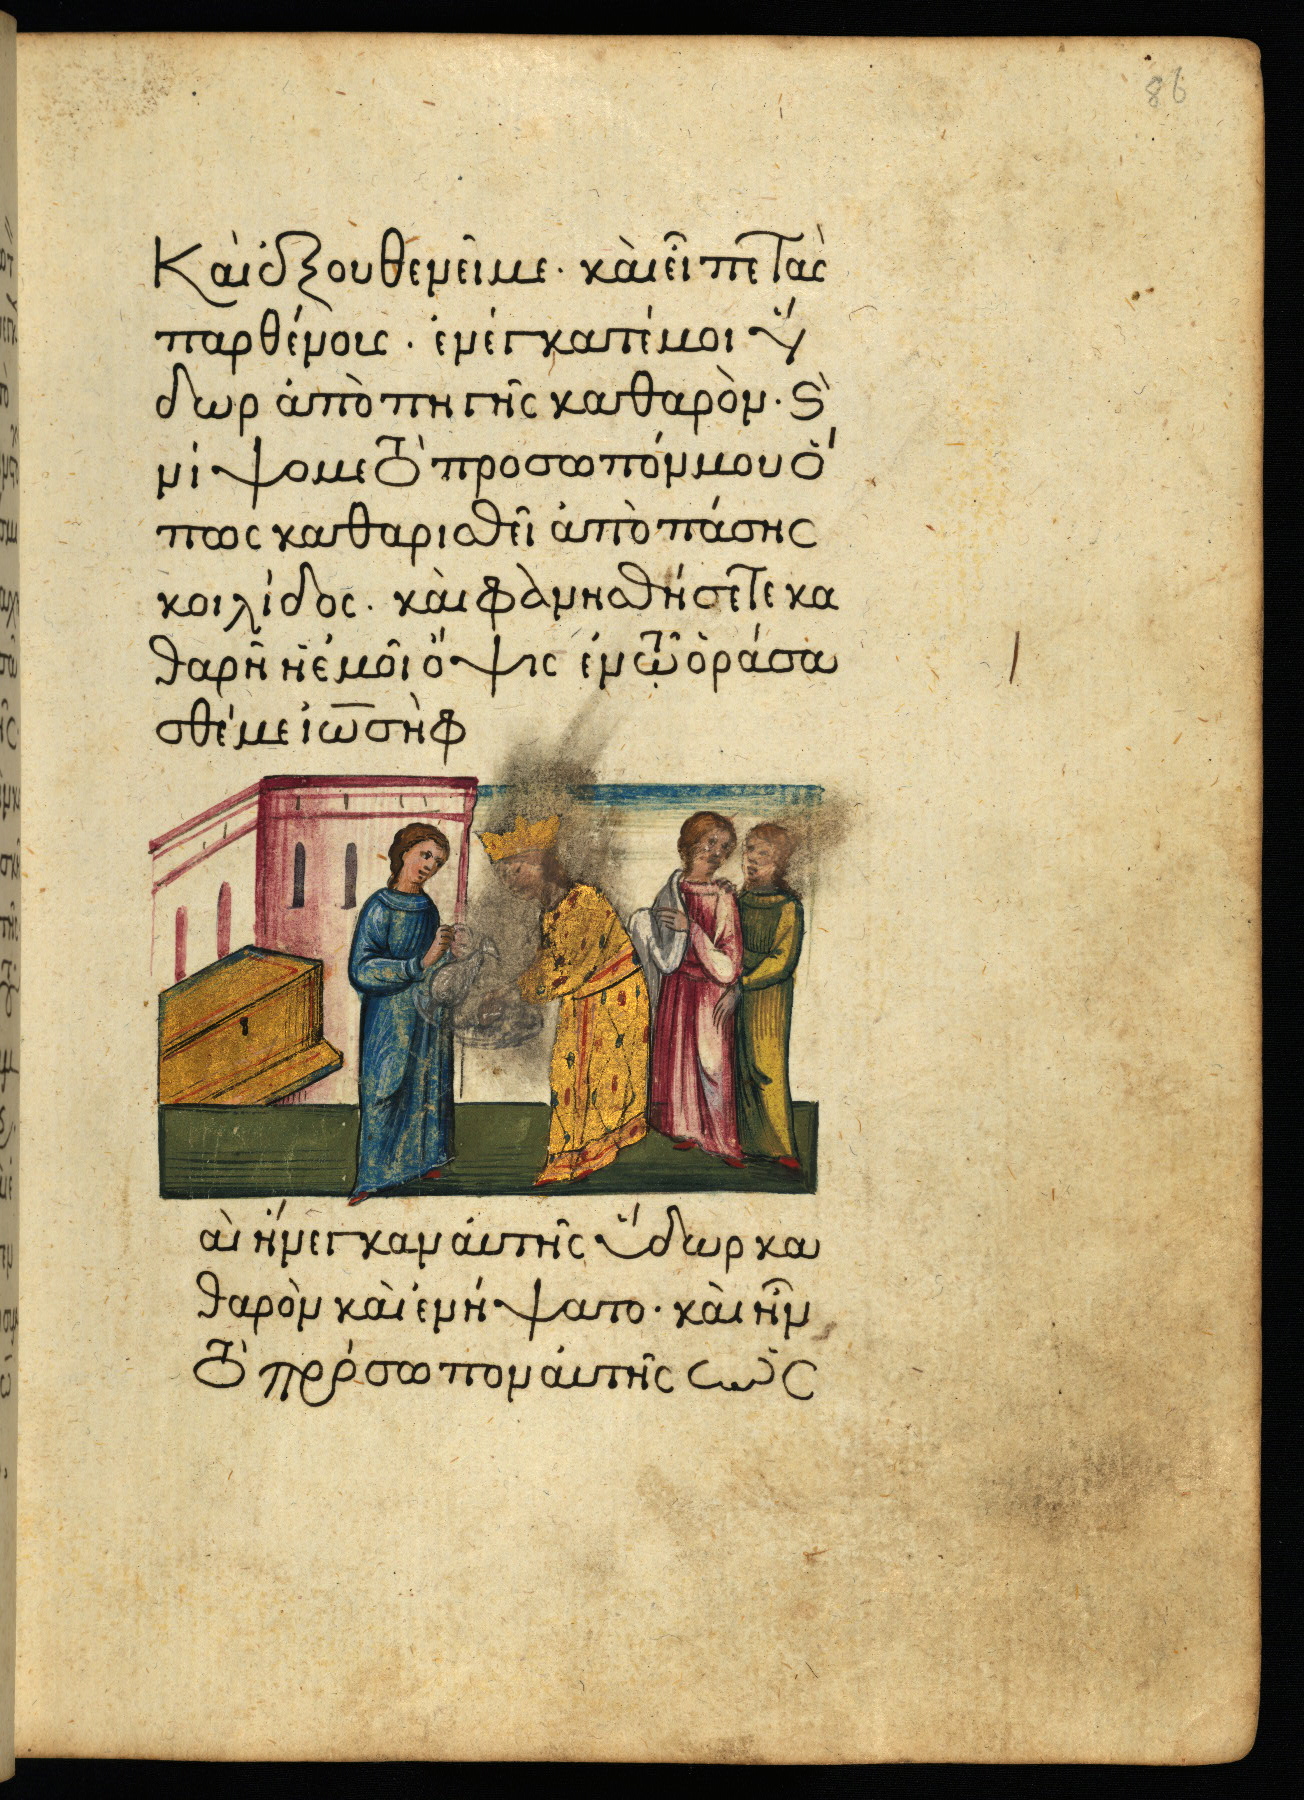 86
Κὰι ἐξουθενεῖ με · κὰι εἶπε τὰς
παρθένοις · ἐνέγκατέ μοι ὕ
δωρ ἀπὸ πηγῆς καθαρὸν · κὶ
νίψομε τὸ προσωπόν μου ὅ
πως καθαρισθεῖ ἀπὸ πάσης
κοιλίδος · κὰι φὰνησθήσετε κα
θαρῆ ἡ ἐμοῖ ὄψις ἐν τῶ ὁράσα
σθέ με ἰωσὴφ
ὰι ἤνεγκαν ἀυτῆς ὕδωρ κα
θαρὸν κὰι ἐνήψατο · κὰι ἦν
τὸ πρόσωπον ἀυτῆς ὡς